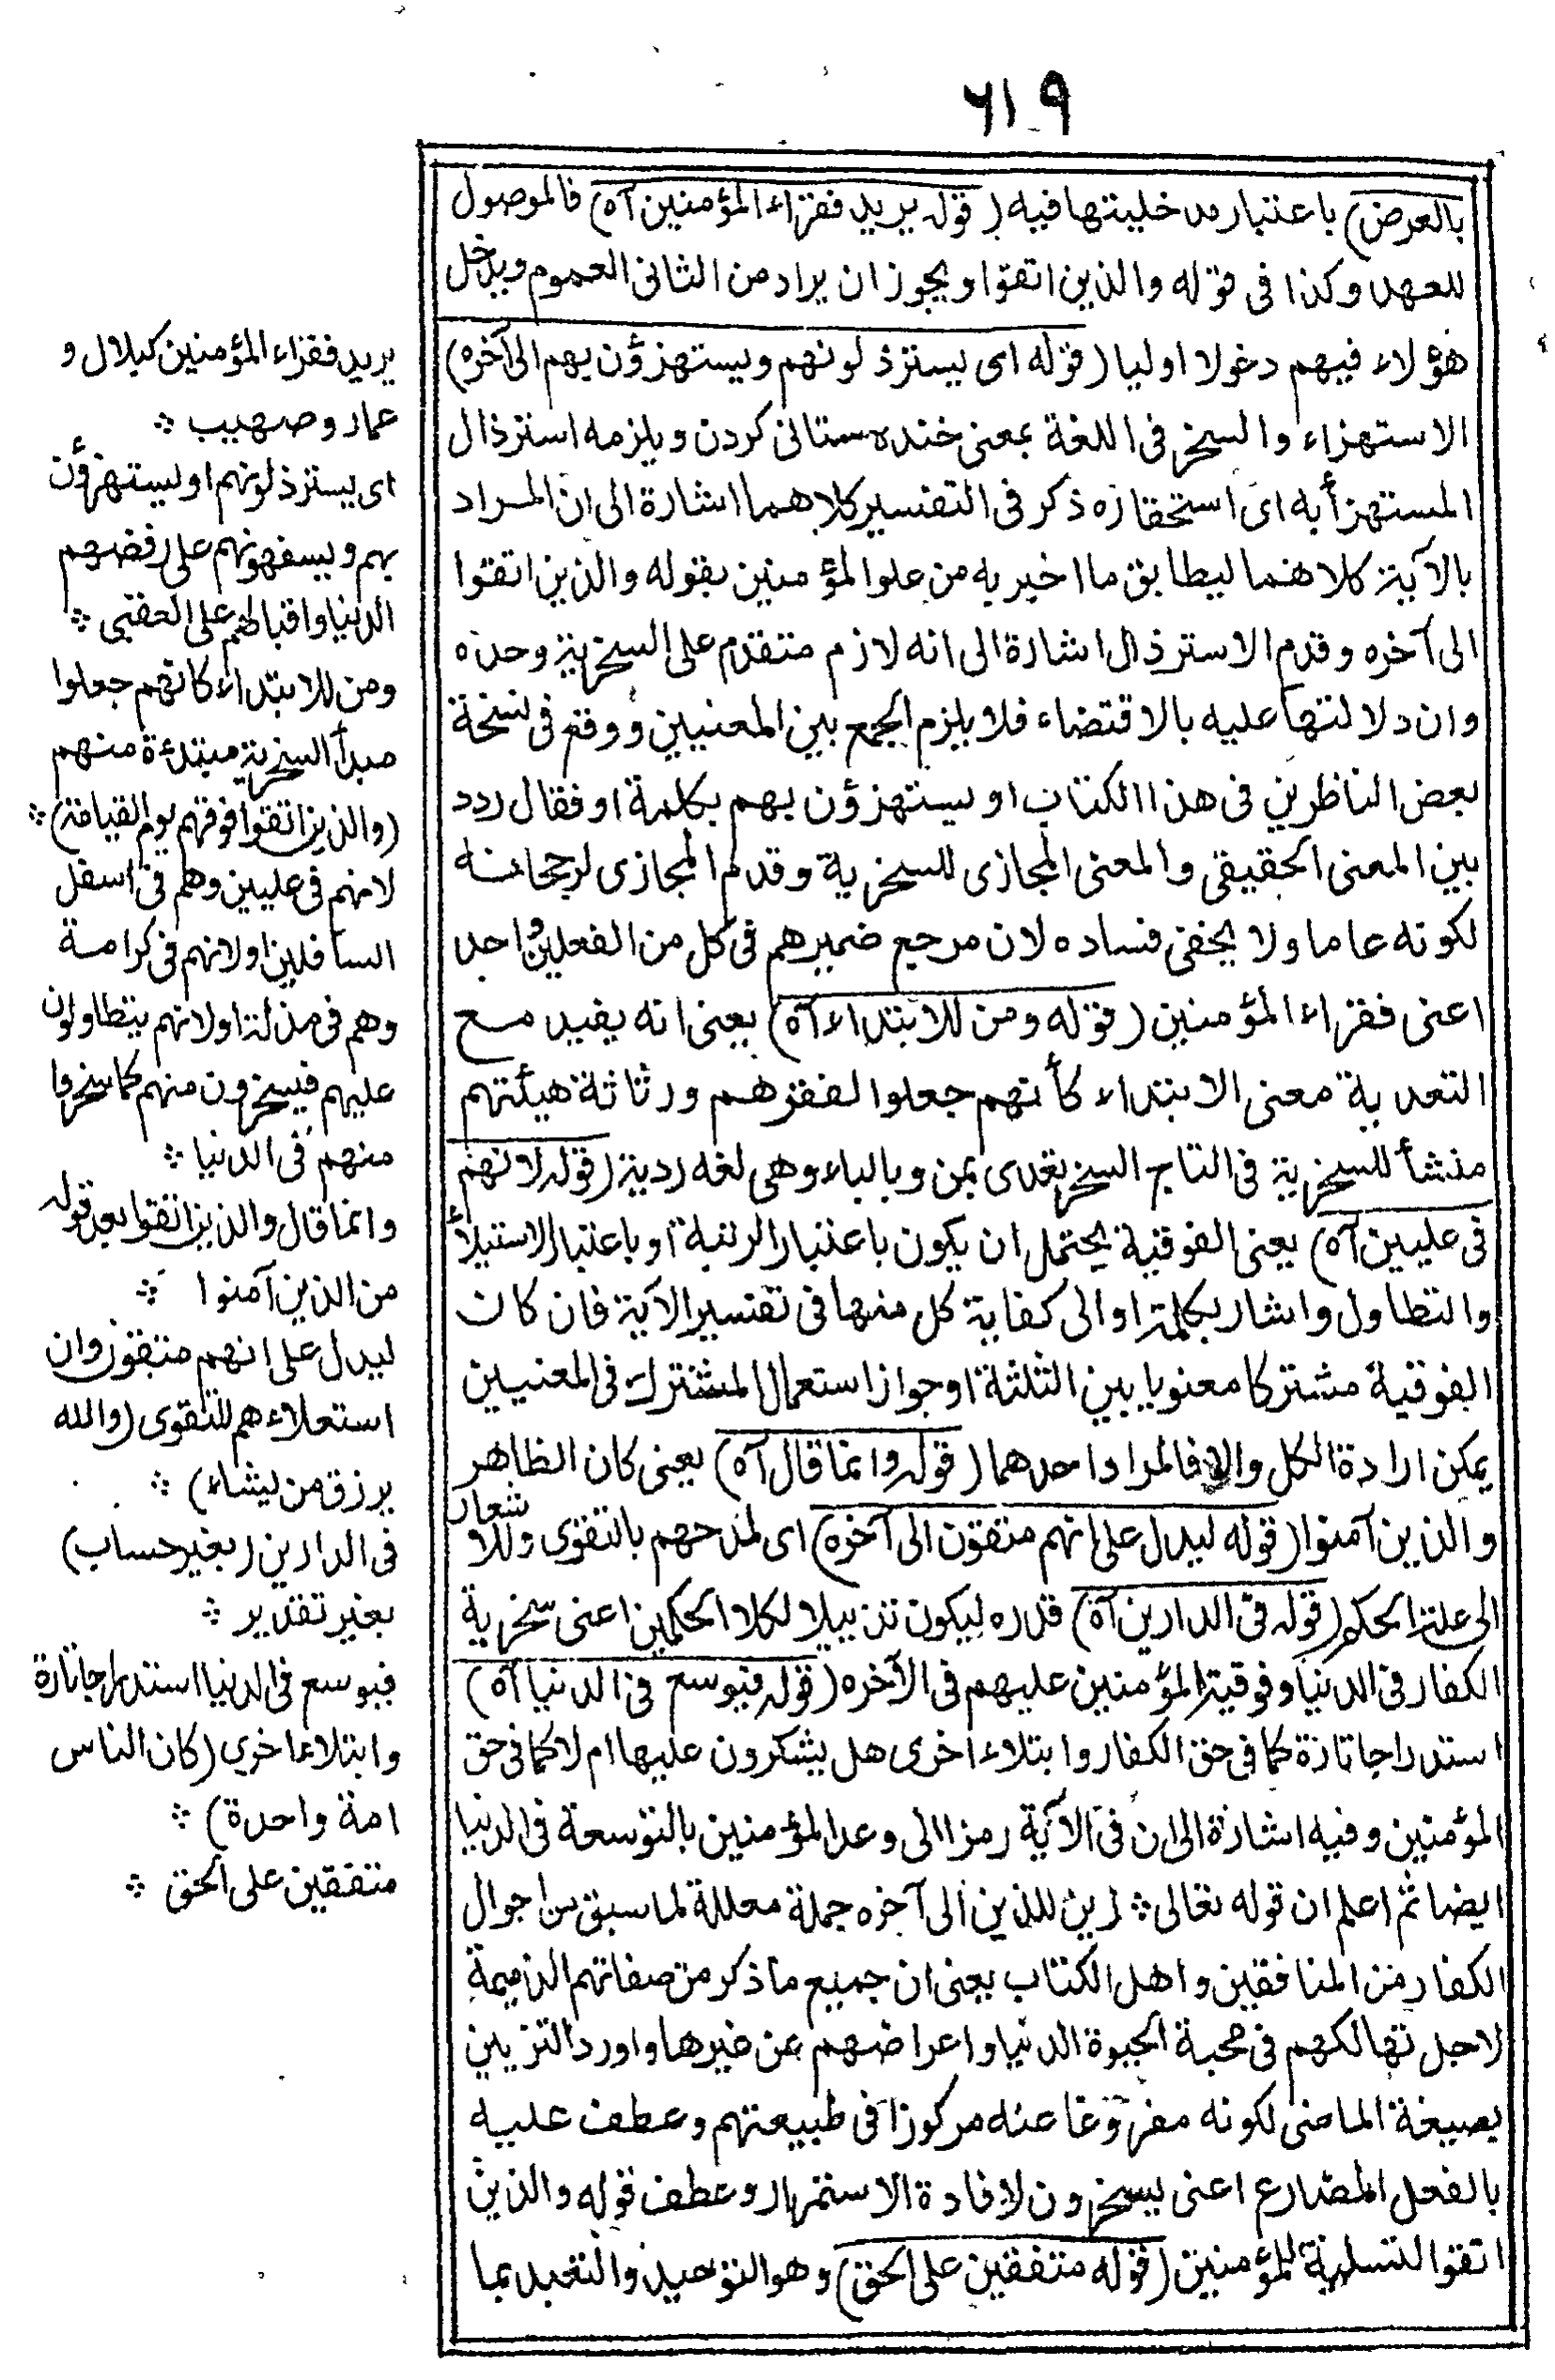 ٦١٩
بالعرض) باعتبار مدخليتها فيه (قوله يريد فقراء المؤمنين آه) فالموصول
للعهد وكذا فى قوله والذين اتقوا ويجوز ان يراد من الثانى العموم ويدخل
هؤلاء فيهم دخولا اوليا (قوله اى يسترذلونهم ويستهزؤن بهم الى آخره)
الاستهزاء والسخر فى اللغة بمعنى خنده ستانى كردن ويلزمه استرذال
المستهزأ به اى استحقاره ذكر فى التفسير كلاهما اشارة الى ان المراد
بالآية كلاهما ليطابق ما اخبر به من علو المؤمنين بقوله والذين اتقوا
الى آخره وقدم الاسترذال اشارة الى انه لازم متقدم على السخرية وحده
وان دلالتها عليه بالاقتضاء فلا يلزم الجمع بين المعنيين ووقع فى نسخة
بعض الناظرين فى هذا الكتاب او يستهزؤن بهم بكلمة او فقال ردد
بين المعنى الحقيقى والمعنى المجازى للسخرية وقدم المجازى لرجحانه
لكونه عاما ولا يخفى فساده لان مرجع ضميرهم فى كل من الفعلين واحد
اعنى فقراء المؤمنين (قوله ومن للابتداء آه) يعنى انه يفيد مع
التعدية معنى الابتداء كأنهم جعلوا لفقرهم ورثاثة هيئتهم
منشأ للسخرية فى التاج السخر يعدى بمن وبالباء وهى لغه ردية (قوله لانهم
فى عليين آه) يعنى الفوقية يحتمل ان يكون باعتبار الرتبة او باعتبار الاستيلأ
والتطاول واشار بكلمة او الى كفاية كل منها فى تفسير الآية فان كان
الفوقية مشتركا معنويا بين الثلثة او جواز استعمال المشترك فى المعنيين
يمكن ارادة الكل والا فالمراد احدهما (قوله وانما قال آه) يعنى كان الظاهر
والذين آمنوا (قوله ليدل على انهم متقون الى آخره) اى لمدحهم بالتقوى وللا شعار
الى علة الحكم (قوله فى الدارين آه) قدره ليكون تذييلا لكلا الحكمين اعنى سخرية
الكفار فى الدنيا وفوقية المؤمنين عليهم فى الآخره (قوله فيوسع فى الدنيا آه)
استدراجا تارة كما فى حق الكفار وابتلاء اخرى هل يشكرون عليها ام لا كما فى حق
المؤمنين وفيه اشارة الى ان فى الآية رمزا الى وعد المؤمنين بالتوسعة فى الدنيا
ايضا ثم اعلم ان قوله تعالى ⁂ زين للذين الى آخره جملة معللة لما سبق من احوال
الكفار من المنافقين واهل الكتاب يعنى ان جميع ما ذكر من صفاتهم الذميمة
لاجل تهالكهم فى محبة الحيوة الدنيا واعراضهم عن غيرها واورد التزيين
بصيغة الماضى لكونه مفروغا عنه مركوزا فى طبيعتهم وعطف عليه
بالفعل المضارع اعنى يسخرون لافادة الاستمرار وعطف قوله والذين
اتقوا لتسلية المؤمنين (قوله متفقين على الحق) وهو التوحيد والتعبد بما
يريد فقراء المؤمنين كبلال و
عمار وصهيب ⁂
اى يسترذلونهم او يستهزؤن
بهم ويسفهونهم على رفضهم
الدنيا واقبالهم على العقبى ⁂
ومن للابتداء كانهم جعلوا
مبدأ السخرية مبتدءة منهم
(والذين اتقوا فوقهم يوم القيامة) ⁂
لانهم فى عليين وهم فى اسفل
السافلين او لانهم فى كرامة
وهم فى مذلة او لانهم يتطاولون
عليهم فيسخرون منهم كما سخروا
منهم فى الدنيا ⁂
وانما قال والذين اتقوا بعد قوله
من الذين آمنوا ⁂
ليدل على انهم متقون وان
استعلاءهم للتقوى (والله
يرزق من يشاء) ⁂
فى الدارين (بغير حساب)
بغير تقدير ⁂
فيوسع فى الدنيا استدراجا تارة
وابتلاء اخرى (كان الناس
امة واحدة) ⁂
متفقين على الحق ⁂